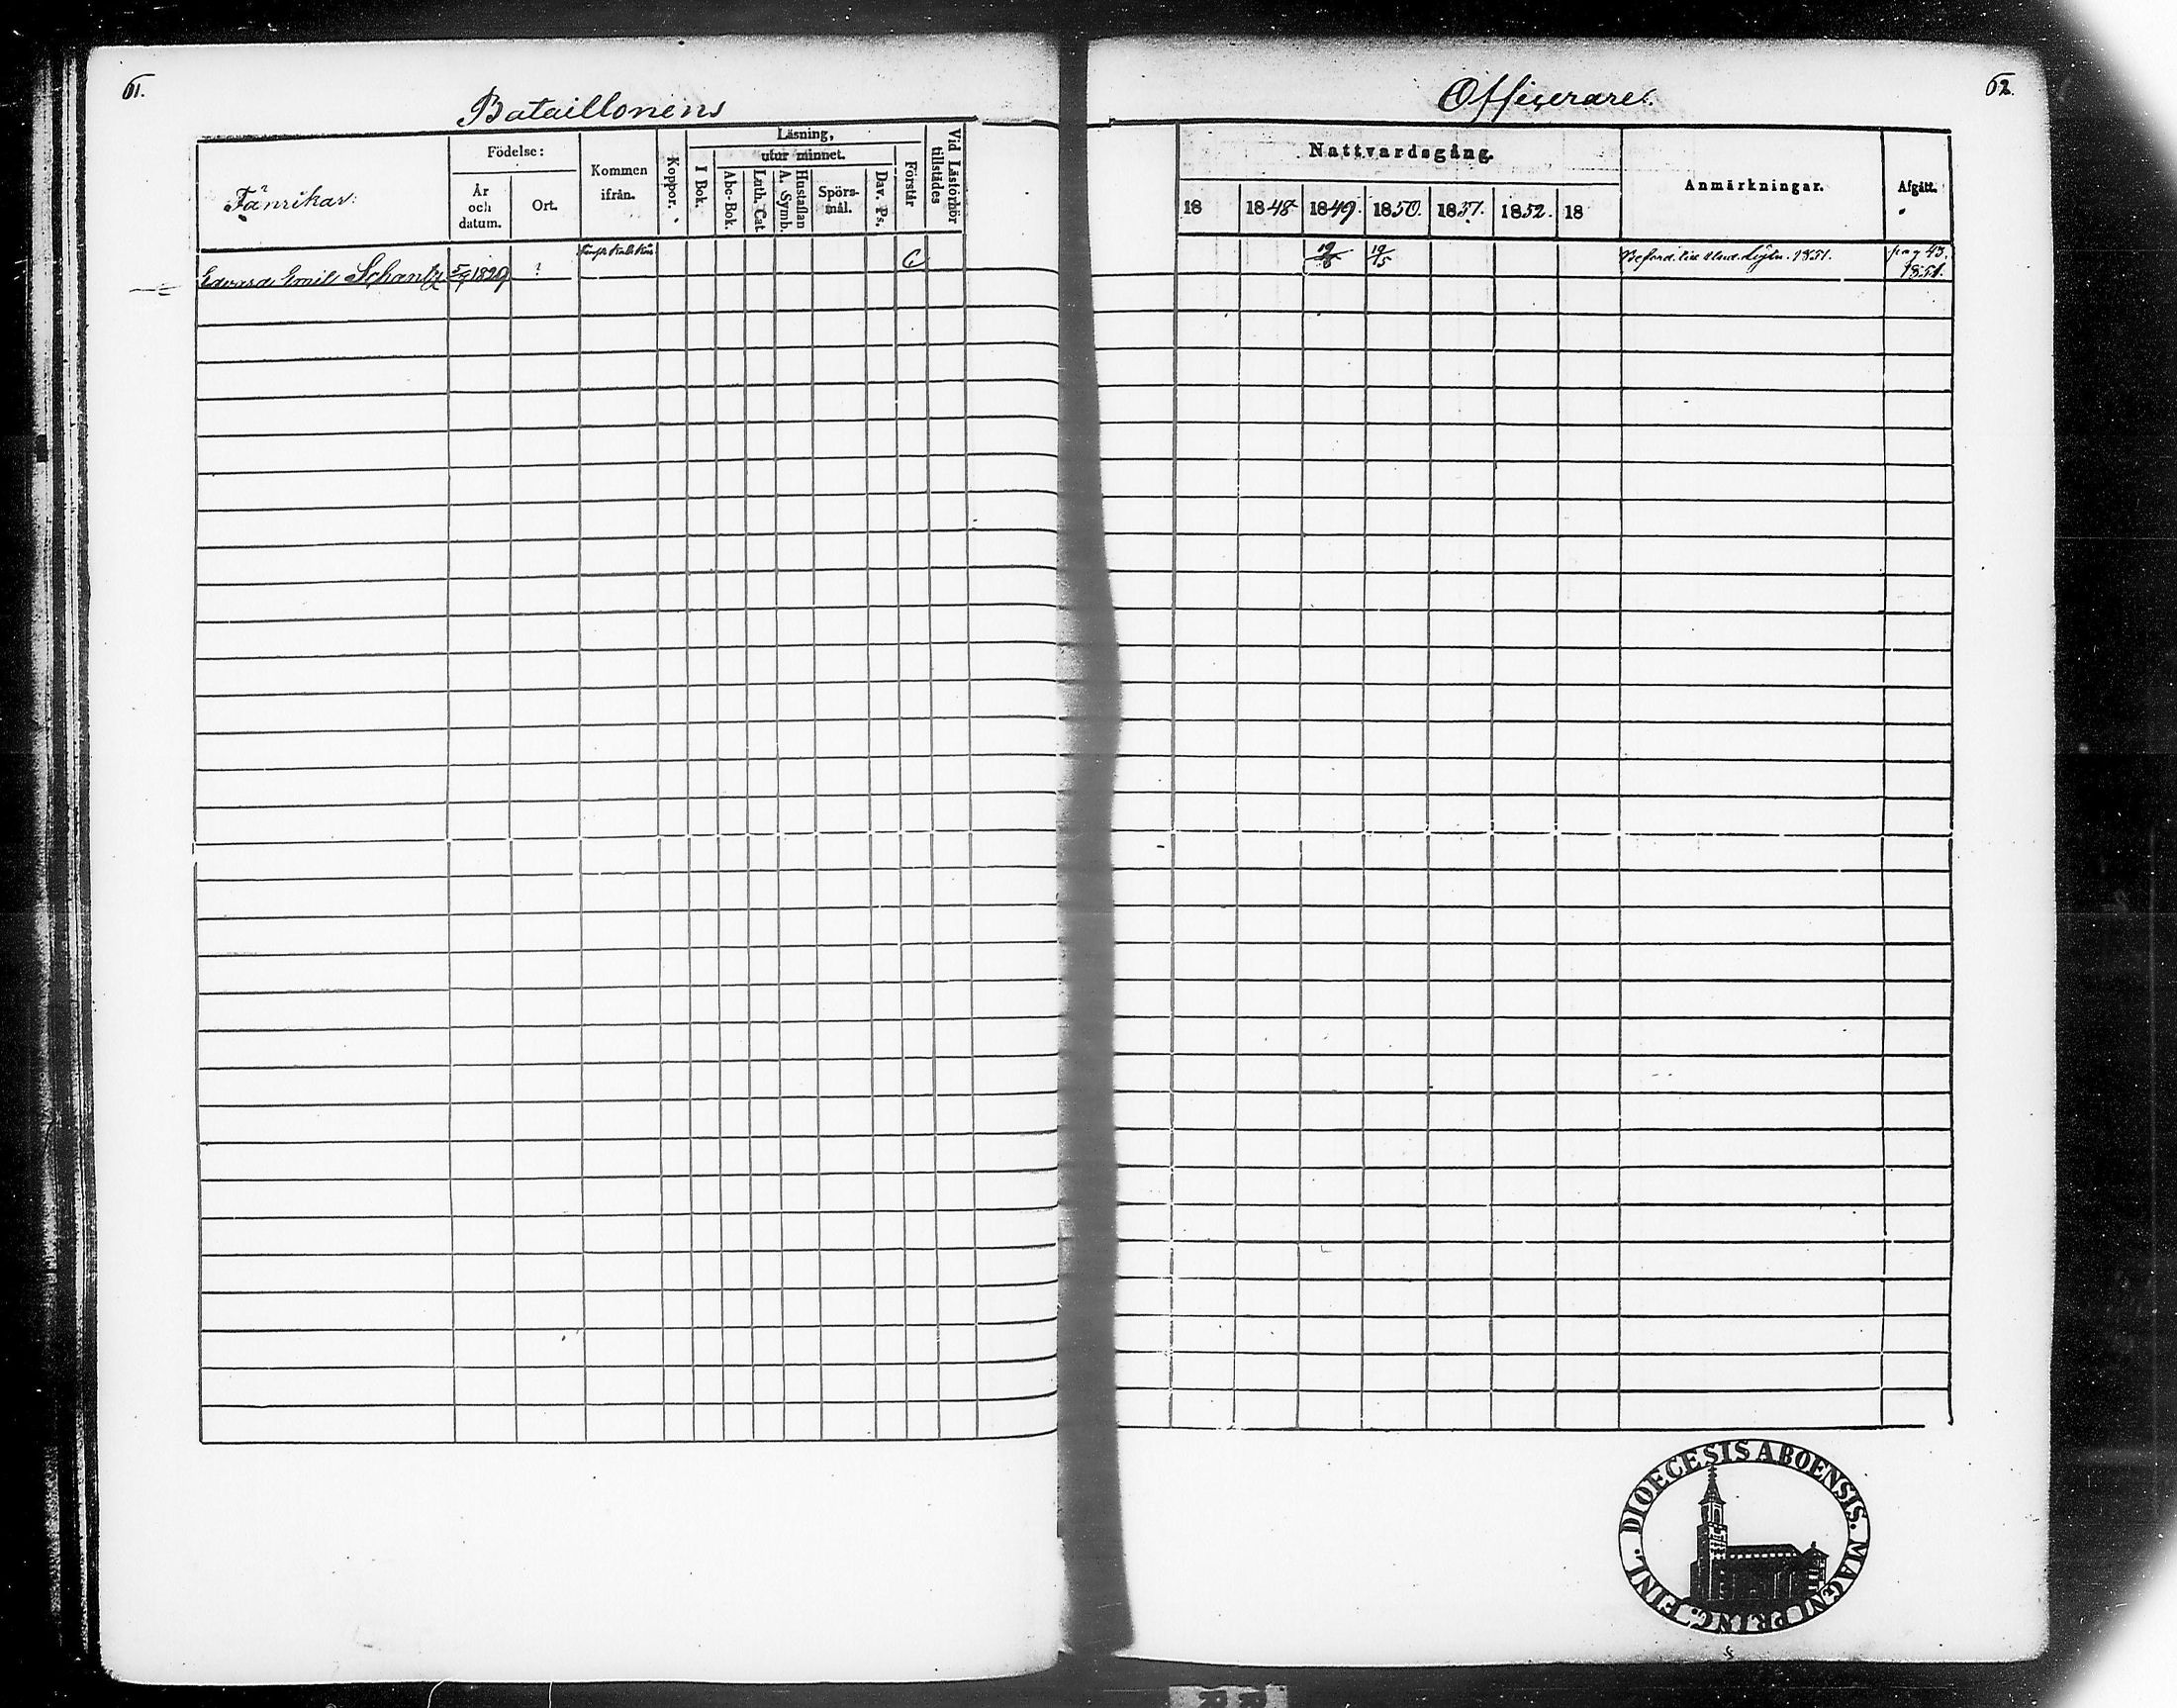 61.
Bataillonens
Fänrikar:
Födelse:
År
och
datum.
Ort.
Kommen
ifrån.
Koppor.
Läsning,
I Bok.
utur minnet.
Abc-Bok.
Luth. Cat
A. Symb.
Hustaflan
Spörs-
mål.
Dav. Ps.
Förstår
Vid Läsförhör
tillstädes
Edvard Emil Schantz 5/9 1829
?
C
Officerare.
62.
Nattvardsgång.
18
1848
1849.
1850.
1851.
1852.
18
Anmärkningar.
Afgått.
19/5
Beford. till 1851.
pag 43.
1851.
DIOECESIS ABOENSIS. MAGNI PRINC. FINL.